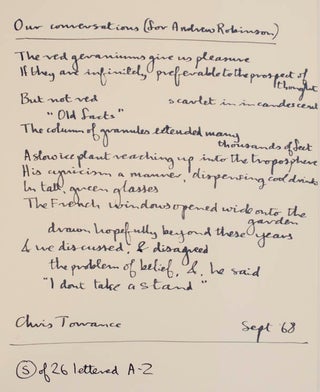 Our conversations (for Andrew Robinson)
The red geraniums give us pleasure
If they are infinitely preferable to the prospect of
thought
But not red scarlet in incandescent
"Old farts"
The column of granules extended many
thousands of feet
A slow ice plant reaching up into the troposphere
His cynicism a manner, dispensing cool drinks
In tall, green glasses
The French windows opened wide onto the
garden
drawn hopefully beyond these years
& we discussed, & disagreed
the problem of belief, &, he said
"I dont take a stand"
Chris Torrance Sept '68
(S) of 26 lettered A-Z